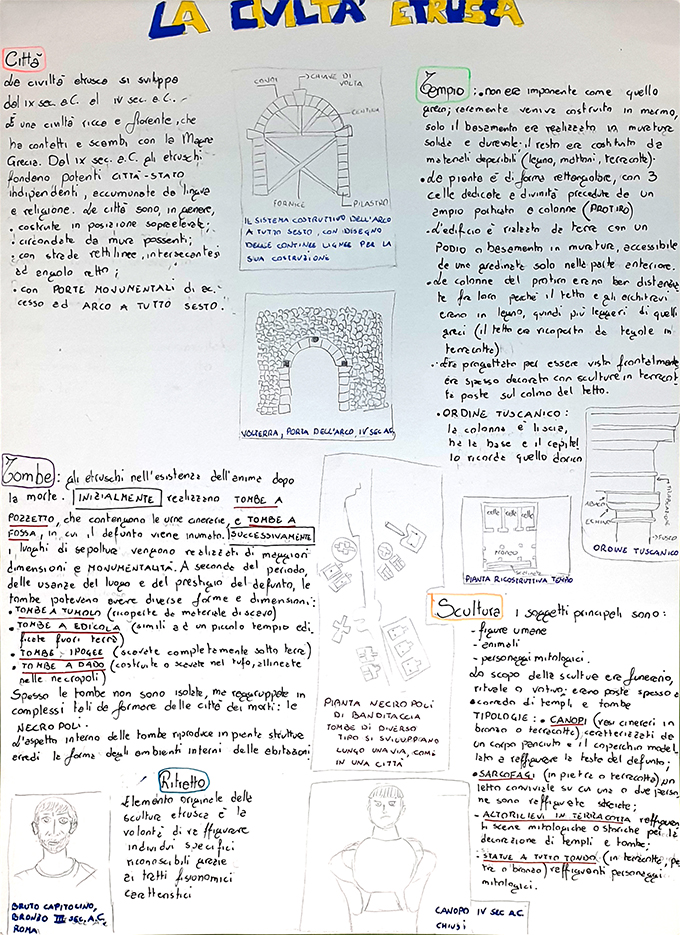 LA CIVILTA' ETRUSCA
Città
La civiltà etrusca si sviluppa
dal IX sec. a.C. al IV sec. a.C.
È una civiltà ricca e fiorente, che
ha contatti e scambi con la Magna
Grecia. Dal IX sec. a.C. gli etruschi
fondano potenti CITTÀ-STATO
indipendenti, accumunate da lingua
e religione. Le città sono, in genere,
• costruite in posizione sopraelevata;
• circondate da mura possenti;
• con strade rettilinee, intersecantesi
ad angolo retto;
• con PORTE MONUMENTALI di ac-
cesso ad ARCO A TUTTO SESTO.
CONCI
CHIAVE DI
VOLTA
CENTINA
FORNICE
PILASTRO
IL SISTEMA COSTRUTTIVO DELL'ARCO
A TUTTO SESTO, CON DISEGNO
DELLE CONTINEE LIGNEE PER LA
SUA COSTRUZIONE
VOLTERRA, PORTA DELL'ARCO, IV SEC. A.C.
Tempio: • non era imponente come quello
greco; raramente veniva costruito in marmo,
solo il basamento era realizzato in muratura
solida e durevole; il resto era costituito da
materiali deperibili (legno, mattoni, terracotta).
• La pianta è di forma rettangolare, con 3
celle dedicate a divinità precedute da un
ampio porticato a colonne (PROTIRO)
• L'edificio è rialzato da terra con un
PODIO o basamento in muratura, accessibile
da una gradinata solo nella parte anteriore.
• Le colonne del protiro erano ben distanzia-
te fra loro perché il tetto e gli architravi
erano in legno, quindi più leggeri di quelli
greci (il tetto era ricoperto da tegole in
terracotta)
• Era progettato per essere visto frontalmente
era spesso decorato con sculture in terracot-
ta poste sul colmo del tetto.
• ORDINE TUSCANICO:
la colonna è liscia,
ha la base e il capitel
lo ricorda quello dorico
ABACO
ECHINO
FUSO
ORDINE TUSCANICO
Tombe: gli etruschi nell'esistenza dell'anima dopo
la morte. INIZIALMENTE realizzano TOMBE A
POZZETTO, che contengono le urne cinerarie, e TOMBE A
FOSSA, in cui il defunto viene inumato. SUCCESSIVAMENTE
i luoghi di sepoltura vengono realizzati di maggiori
dimensioni e MONUMENTALITÀ. A seconda del periodo,
delle usanze del luogo e del prestigio del defunto, le
tombe potevano avere diverse forme e dimensioni:
• TOMBE A TUMOLO (ricoperte da materiale di scavo)
• TOMBE A EDICOLA (simili ad un piccolo tempio edi
ficate fuori terra)
• TOMBE IPOGEE (scavate completamente sotto terra)
• TOMBE A DADO (costruite o scavate nel tufo, allineate
nelle necropoli)
Spesso le tombe non sono isolate, ma raggruppate in
complessi tali da formare delle città dei morti: le
NECROPOLI.
L'aspetto interno delle tombe riproduce in pianta strutture
arredi la forma degli ambienti interni delle abitazioni
PIANTA NECROPOLI
DI BANDITACCIA
TOMBE DI DIVERSO
TIPO SI SVILUPPANO
LUNGO UNA VIA, COME
IN UNA CITTÀ
cella
cella
cella
PIANTA RICOSTRUTTIVA TEMPIO
Scultura i soggetti principali sono:
- figure umane
- animali
- personaggi mitologici.
Lo scopo delle scultue era funerario,
rituale o votivo: erano poste spesso a
corredo di templi e tombe
TIPOLOGIE: • CANOPI (vasi cinerari in
bronzo o terracotta) caratterizzati da
un corpo panciuto e il coperchio model
lato a raffigurare la testa del defunto;
• SARCOFAGI (in pietra o terracotta) un
letto conviviale su cui una o due perso
ne sono raffigurate sdraiate;
- ALTORILIEVI IN TERRACOTTA raffiguran
ti scene mitologiche o storiche per la
decorazione di templi e tombe;
- STATUE A TUTTO TONDO (in terracotta, pie
tra o bronzo) raffiguranti personaggi
mitologici.
Ritratto
Elemento originale della
scultura etrusca è la
volontà di raffigurare
individui specifici
riconoscibili grazie
ai tratti fisionomici
caratteristici
BRUTO CAPITOLINO,
BRONZO III SEC. A.C.
ROMA
CANOPO IV SEC A.C.
CHIUSI